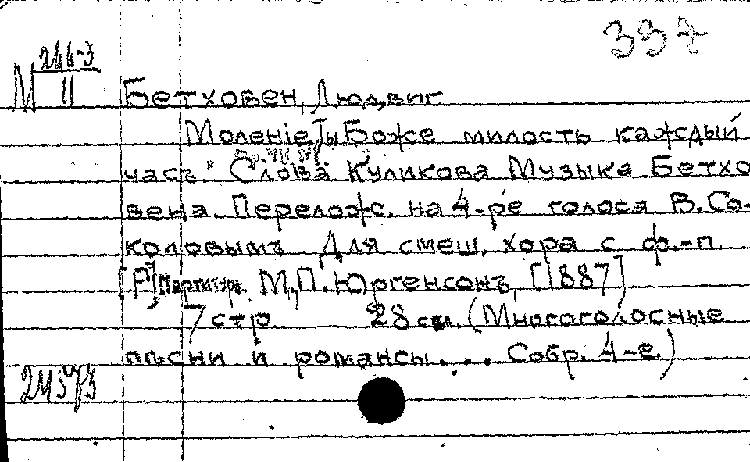 337
М 266-3
11
Бетховен, Людвиг
Моленіе. Ты Боже милость каждый
часъ" Слова Куликова Музыка Бетхо
вена. Перелож. на 4-ре голоса В. Со-
коловымъ Для смеш. хора с ф.-п.
[Р] Партитура. М, П. Юргенсонъ, [1887]
7 стр. 28 см. (Многоголосные
песни и романсы.... Собр. 4-е.)